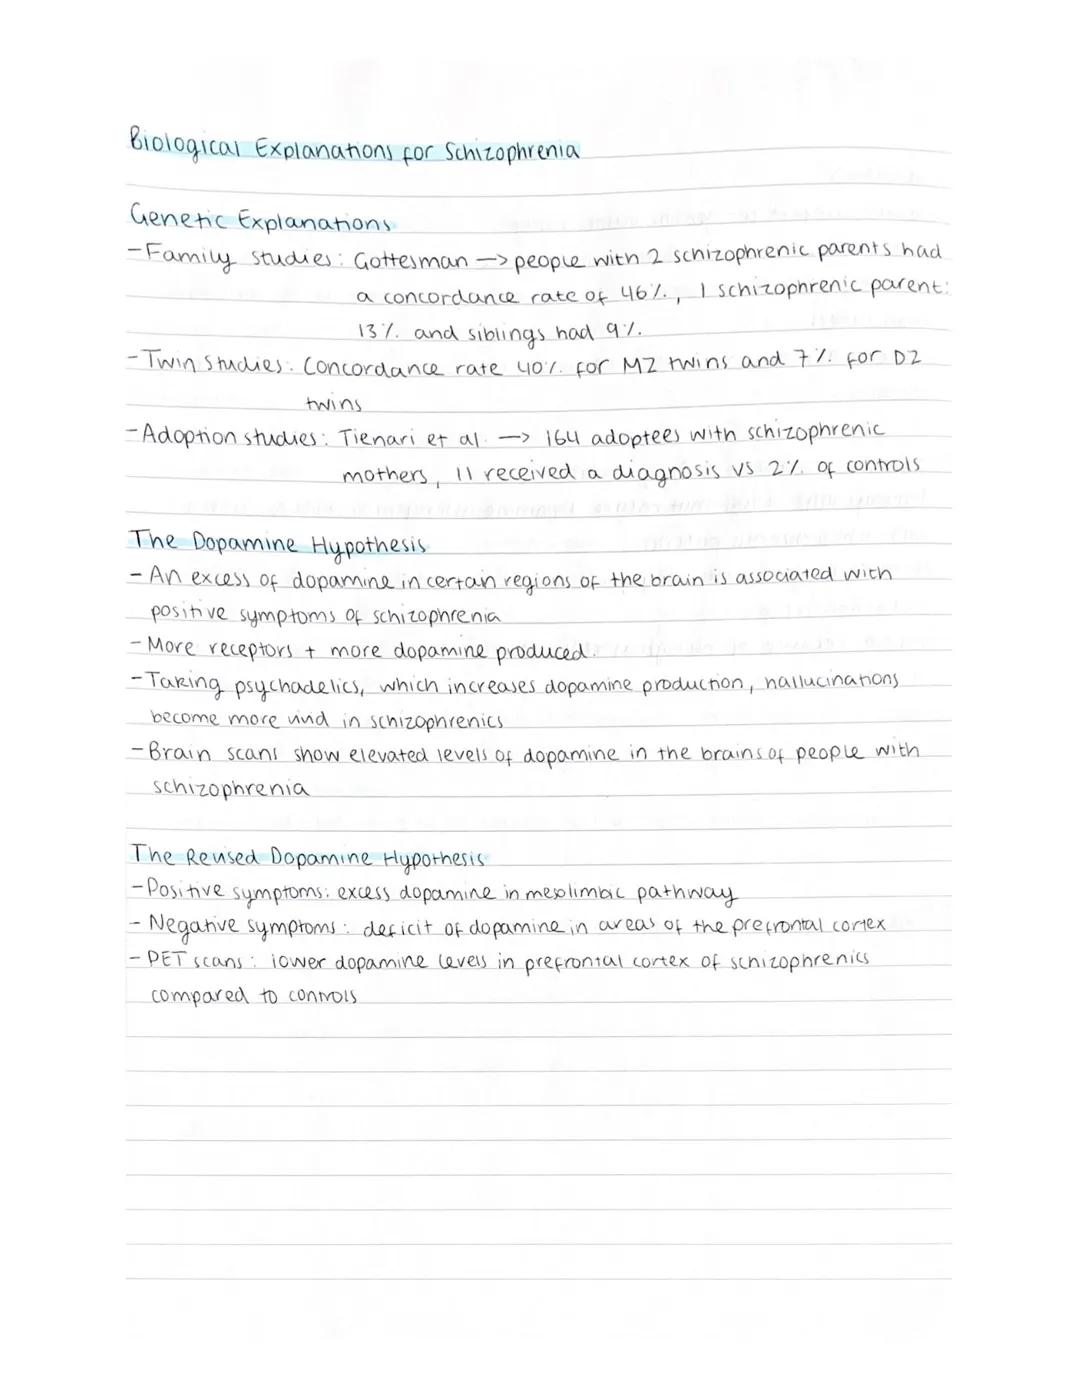 Biological Explanations for Schizophrenia
Genetic Explanations
- Family studies: Gottesman → people with 2 schizophrenic parents had
a concordance rate of 46%, 1 schizophrenic parent:
13% and siblings had 9%.
- Twin studies: Concordance rate 40% for MZ twins and 7% for DZ
twins
- Adoption studies: Tienari et al. → 164 adoptees with schizophrenic
mothers, 11 received a diagnosis vs 2% of controls
The Dopamine Hypothesis
- An excess of dopamine in certain regions of the brain is associated with
positive symptoms of schizophrenia
- More receptors + more dopamine produced.
- Taking psychadelics, which increases dopamine production, hallucinations
become more vivid in schizophrenics
- Brain scans show elevated levels of dopamine in the brains of people with
schizophrenia
The Revised Dopamine Hypothesis
- Positive symptoms: excess dopamine in mesolimbic pathway
- Negative symptoms: deficit of dopamine in areas of the prefrontal cortex
- PET scans: lower dopamine levels in prefrontal cortex of schizophrenics
compared to controls